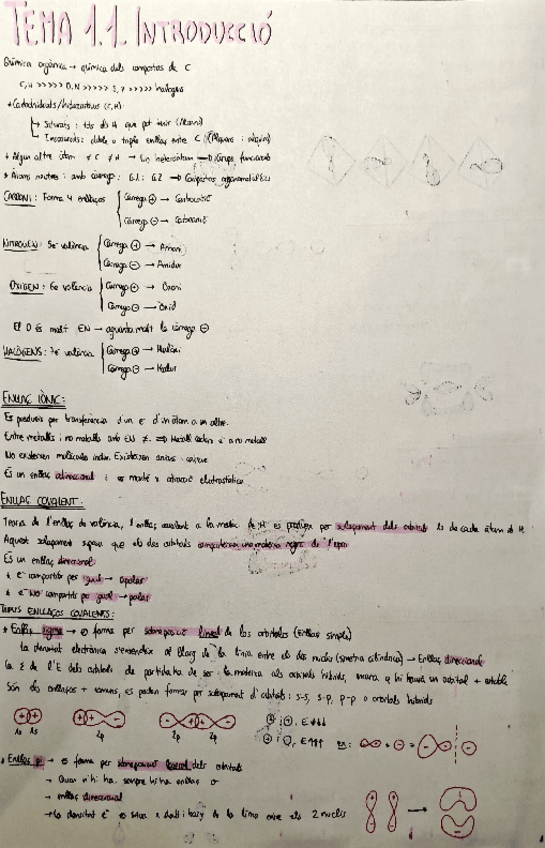 TEMA 1.1. INTRODUCCIÓ
Química orgànica → química dels compostos de C
C, H >>>>> O, N >>>>> S, P >>>>> halògens
(C, H)
Saturats: tots els H que pot tenir (Alcans)
Insaturats: doble o triple enllaç entre C (Alquens i alquins)
* Algun altre àtom ≠ C ≠ H → Un heteroàtom → Grup funcional
G1 i G2 → Compostos organometàl·lics
CARBONI: Forma 4 enllaços
Càrrega ⊕ → Carbocatió
Càrrega ⊖ → Carboanió
NITROGEN: 5e⁻ valència
Càrrega ⊕ → Amoni
Càrrega ⊖ → Amidur
OXIGEN: 6e⁻ valència
Càrrega ⊕ → Oxoni
Càrrega ⊖ → Òxid
El O és molt EN → aguanta molt la càrrega ⊖
HALÒGENS: 7e⁻ valència
Càrrega ⊕ →
Càrrega ⊖ → Halur
ENLLAÇ IÒNIC:
Es produeix per transferència d'un e⁻ d'un àtom a un altre.
Entre metalls i no metalls amb EN ≠. ⇒ Metall cedeix e⁻ a no metall
No existeixen molècules indiv. Existeixen
És un enllaç adireccional i es manté x atracció electrostàtica
ENLLAÇ COVALENT:
Teoria de l'enllaç de valència, l'enllaç covalent a la molec. de H₂ es produeix per solapament dels orbitals 1s de cada àtom de H
Aquest solapament suposa que els dos orbitals comparteixen una mateixa regió de l'espai
És un enllaç direccional
* e⁻ compartits per igual → apolar
* e⁻ No compartits per igual → polar
TIPUS ENLLAÇOS COVALENTS:
* Enllaç sigma → es forma per sobreposició lineal de los orbitales (Enllaç simple)
La densitat electrònica s'estén al llarg de la línia entre els dos nuclis (simetria cilíndrica) → Enllaç direccional
la E de l'E dels orbitals de partida ha de ser la mateixa
Són els enllaços + comuns, es poden formar per solapament d'orbitals: s-s, s-p, p-p o orbitals híbrids
1s 1s
2p
2p 2p
⊕ i ⊕, E ↓↓↓
⊕ i ⊖, E ↑↑↑
ex:
* Enllaç pi → es forma per sobreposició lateral dels orbitals
→ Quan n'hi ha, sempre hi ha enllaç σ
→ enllaç direccional
→ La densitat e⁻ es situa x dalt i baix de la línia entre els 2 nuclis